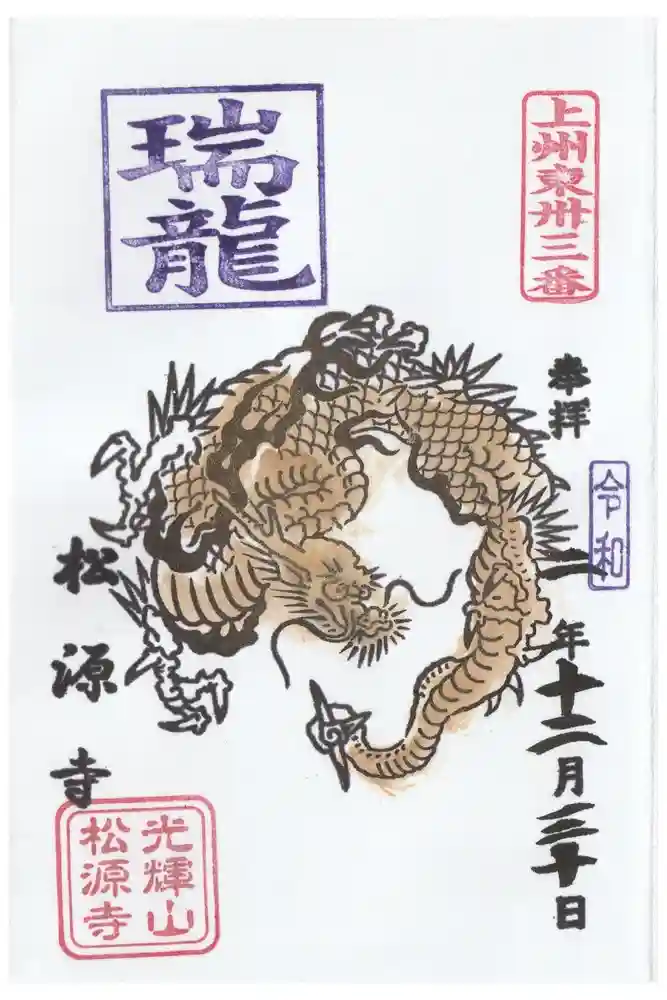 上州東卅三番
奉拝
令和
二年十二月三十日
瑞龍
松源寺
光輝山
松源寺